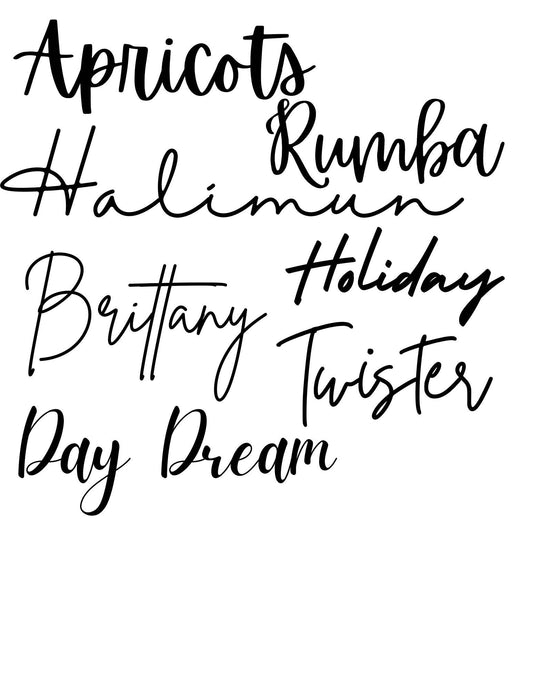 Apricots
Rumba
Halimun
Holiday
Brittany
Twister
Day Dream